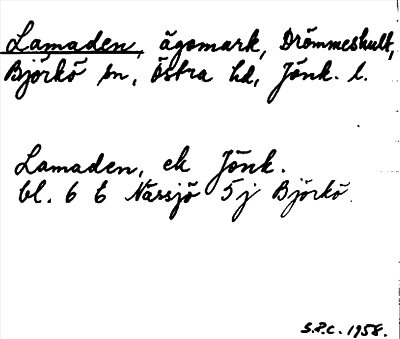 Lamaden, ägomark, Drömmeskult,
Björkö sn, Östra hd, Jönk. l.
Lamaden, ek Jönk.
bl. 6 E Nässjö 5j Björkö
S.P.C. 1958.